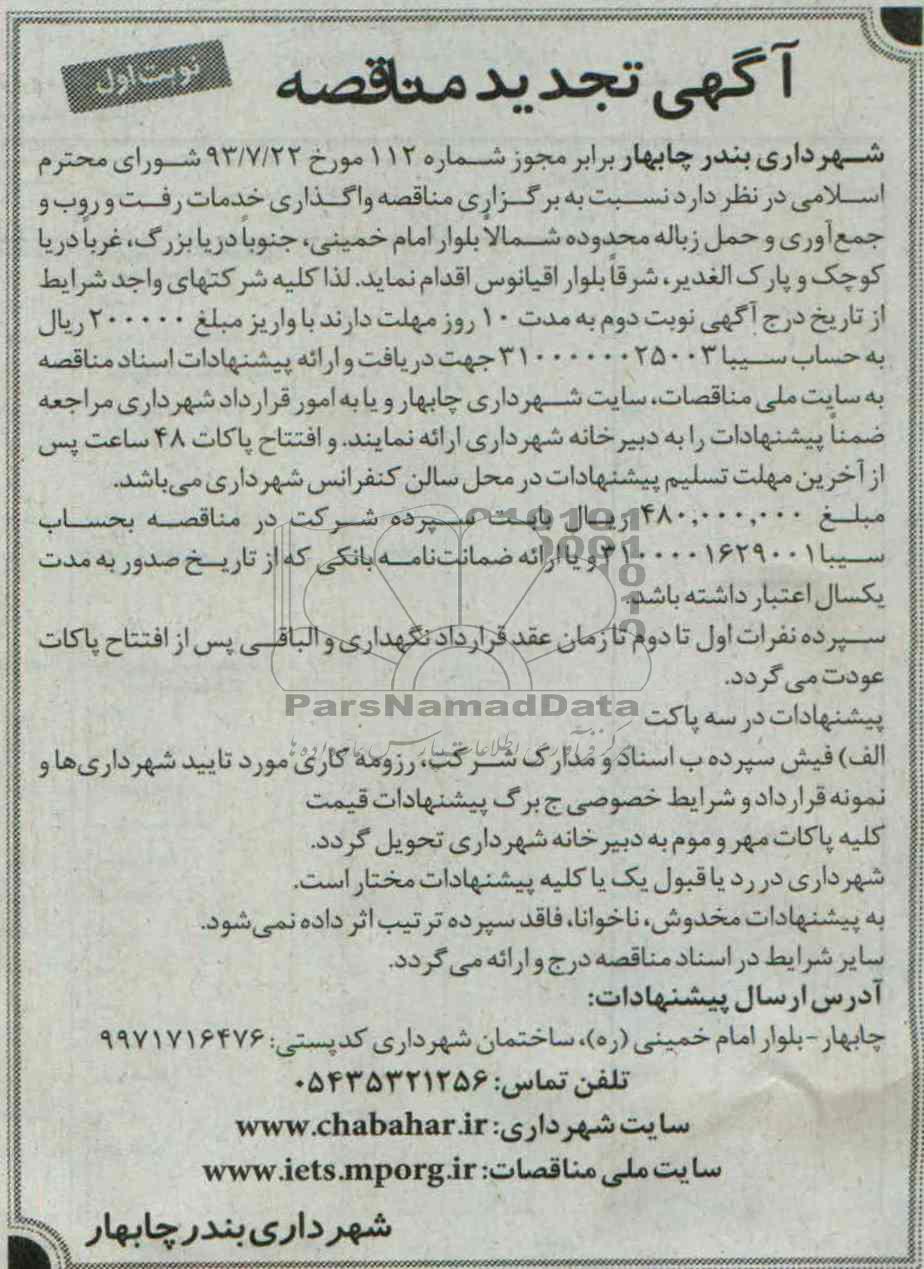 آگهی تجدید مناقصه
نوبت اول
شهرداری بندر چابهار برابر مجوز شماره ۱۱۲ مورخ ۹۳/۷/۲۲ شورای محترم
اسلامی در نظر دارد نسبت به برگزاری مناقصه واگذاری خدمات رفت و روب و
جمع‌آوری و حمل زباله محدوده شمالاً بلوار امام خمینی، جنوباً دریا بزرگ، غرباً دریا
کوچک و پارک الغدیر، شرقاً بلوار اقیانوس اقدام نماید. لذا کلیه شرکتهای واجد شرایط
از تاریخ درج آگهی نوبت دوم به مدت ۱۰ روز مهلت دارند با واریز مبلغ ۲۰۰۰۰۰ ریال
به حساب سیبا ۳۱۰۰۰۰۰۰۲۵۰۰۳ جهت دریافت و ارائه پیشنهادات اسناد مناقصه
به سایت ملی مناقصات، سایت شهرداری چابهار و یا به امور قرارداد شهرداری مراجعه
ضمناً پیشنهادات را به دبیرخانه شهرداری ارائه نمایند. و افتتاح پاکات ۴۸ ساعت پس
از آخرین مهلت تسلیم پیشنهادات در محل سالن کنفرانس شهرداری می‌باشد.
مبلغ ۴۸۰,۰۰۰,۰۰۰ ریال بابت سپرده شرکت در مناقصه بحساب
سیبا ۳۱۰۰۰۰۱۶۲۹۰۰۱ و یا ارائه ضمانت‌نامه بانکی که از تاریخ صدور به مدت
یکسال اعتبار داشته باشد.
سپرده نفرات اول تا دوم تا زمان عقد قرارداد نگهداری و الباقی پس از افتتاح پاکات
عودت می گردد.
ParsNamadData
پیشنهادات در سه پاکت
الف) فیش سپرده ب اسناد و مدارک شرکت، رزومه کاری مورد تایید شهرداری‌ها و
نمونه قرارداد و شرایط خصوصی ج برگ پیشنهادات قیمت
کلیه پاکات مهر و موم به دبیرخانه شهرداری تحویل گردد.
شهرداری در رد یا قبول یک یا کلیه پیشنهادات مختار است.
به پیشنهادات مخدوش، ناخوانا، فاقد سپرده ترتیب اثر داده نمی‌شود.
سایر شرایط در اسناد مناقصه درج و ارائه می گردد.
آدرس ارسال پیشنهادات:
چابهار-بلوار امام خمینی (ره)، ساختمان شهرداری کدپستی: ۹۹۷۱۷۱۶۴۷۶
تلفن تماس: ۰۵۴۳۵۳۲۱۲۵۶
سایت شهرداری: www.chabahar.ir
سایت ملی مناقصات: www.iets.mporg.ir
شهرداری بندر چابهار